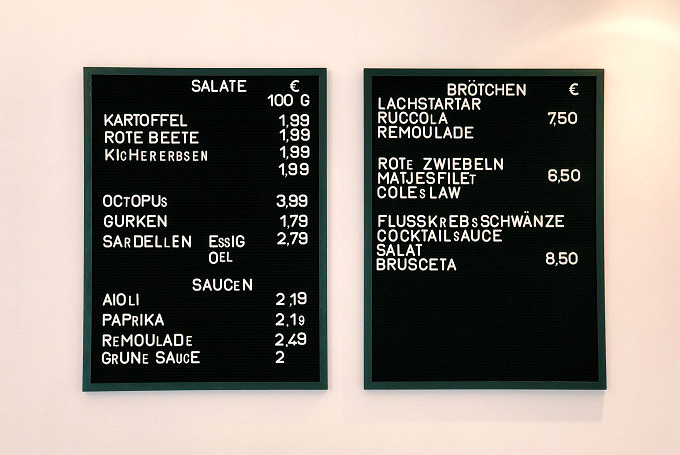 SALATE €
100 G
KARTOFFEL 1,99
ROTE BEETE 1,99
KICHERERBSEN 1,99
1,99
OCTOPUS 3,99
GURKEN 1,79
SARDELLEN ESSIG 2,79
OEL
SAUCEN
AIOLI 2,19
PAPRIKA 2,19
REMOULADE 2,49
GRUNE SAUCE 2
BRÖTCHEN €
LACHSTARTAR
RUCCOLA 7,50
REMOULADE
ROTE ZWIEBELN
MATJESFILET 6,50
COLESLAW
FLUSSKREBSSCHWÄNZE
COCKTAILSAUCE
SALAT
BRUSCETA 8,50